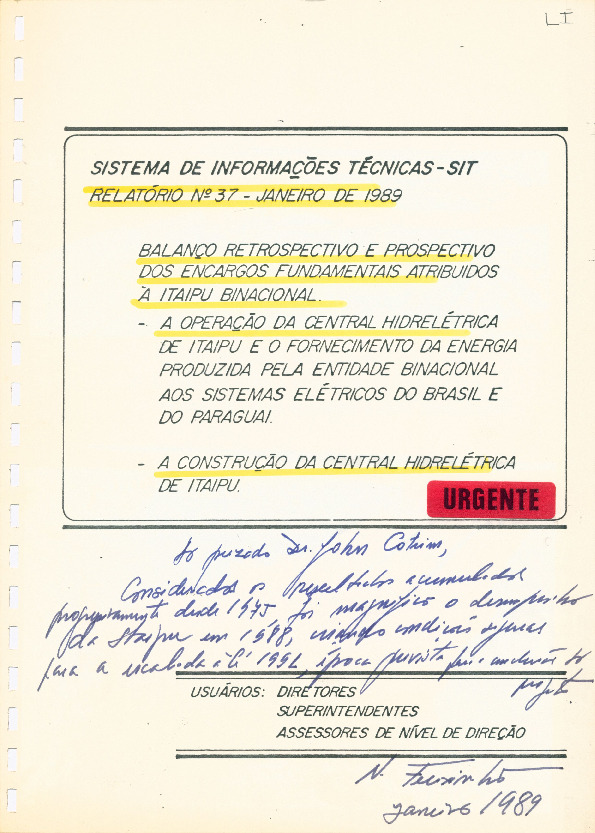 LI
SISTEMA DE INFORMAÇÕES TÉCNICAS - SIT
RELATÓRIO Nº 37 - JANEIRO DE 1989
BALANÇO RETROSPECTIVO E PROSPECTIVO
DOS ENCARGOS FUNDAMENTAIS ATRIBUIDOS
À ITAIPU BINACIONAL.
- A OPERAÇÃO DA CENTRAL HIDRELÉTRICA
DE ITAIPU E O FORNECIMENTO DA ENERGIA
PRODUZIDA PELA ENTIDADE BINACIONAL
AOS SISTEMAS ELÉTRICOS DO BRASIL E
DO PARAGUAI.
- A CONSTRUÇÃO DA CENTRAL HIDRELÉTRICA
DE ITAIPU.
URGENTE
Ao prezado Dr. John Cotrim,
Considerados os resultados acumulados
progressivamente desde 1975, foi magnífico o desempenho
da Itaipu em 1988, criando condições seguras
para a escalada até 1992, época prevista para conclusão do
projeto
USUÁRIOS: DIRETORES
SUPERINTENDENTES
ASSESSORES DE NÍVEL DE DIREÇÃO
N.
janeiro 1989